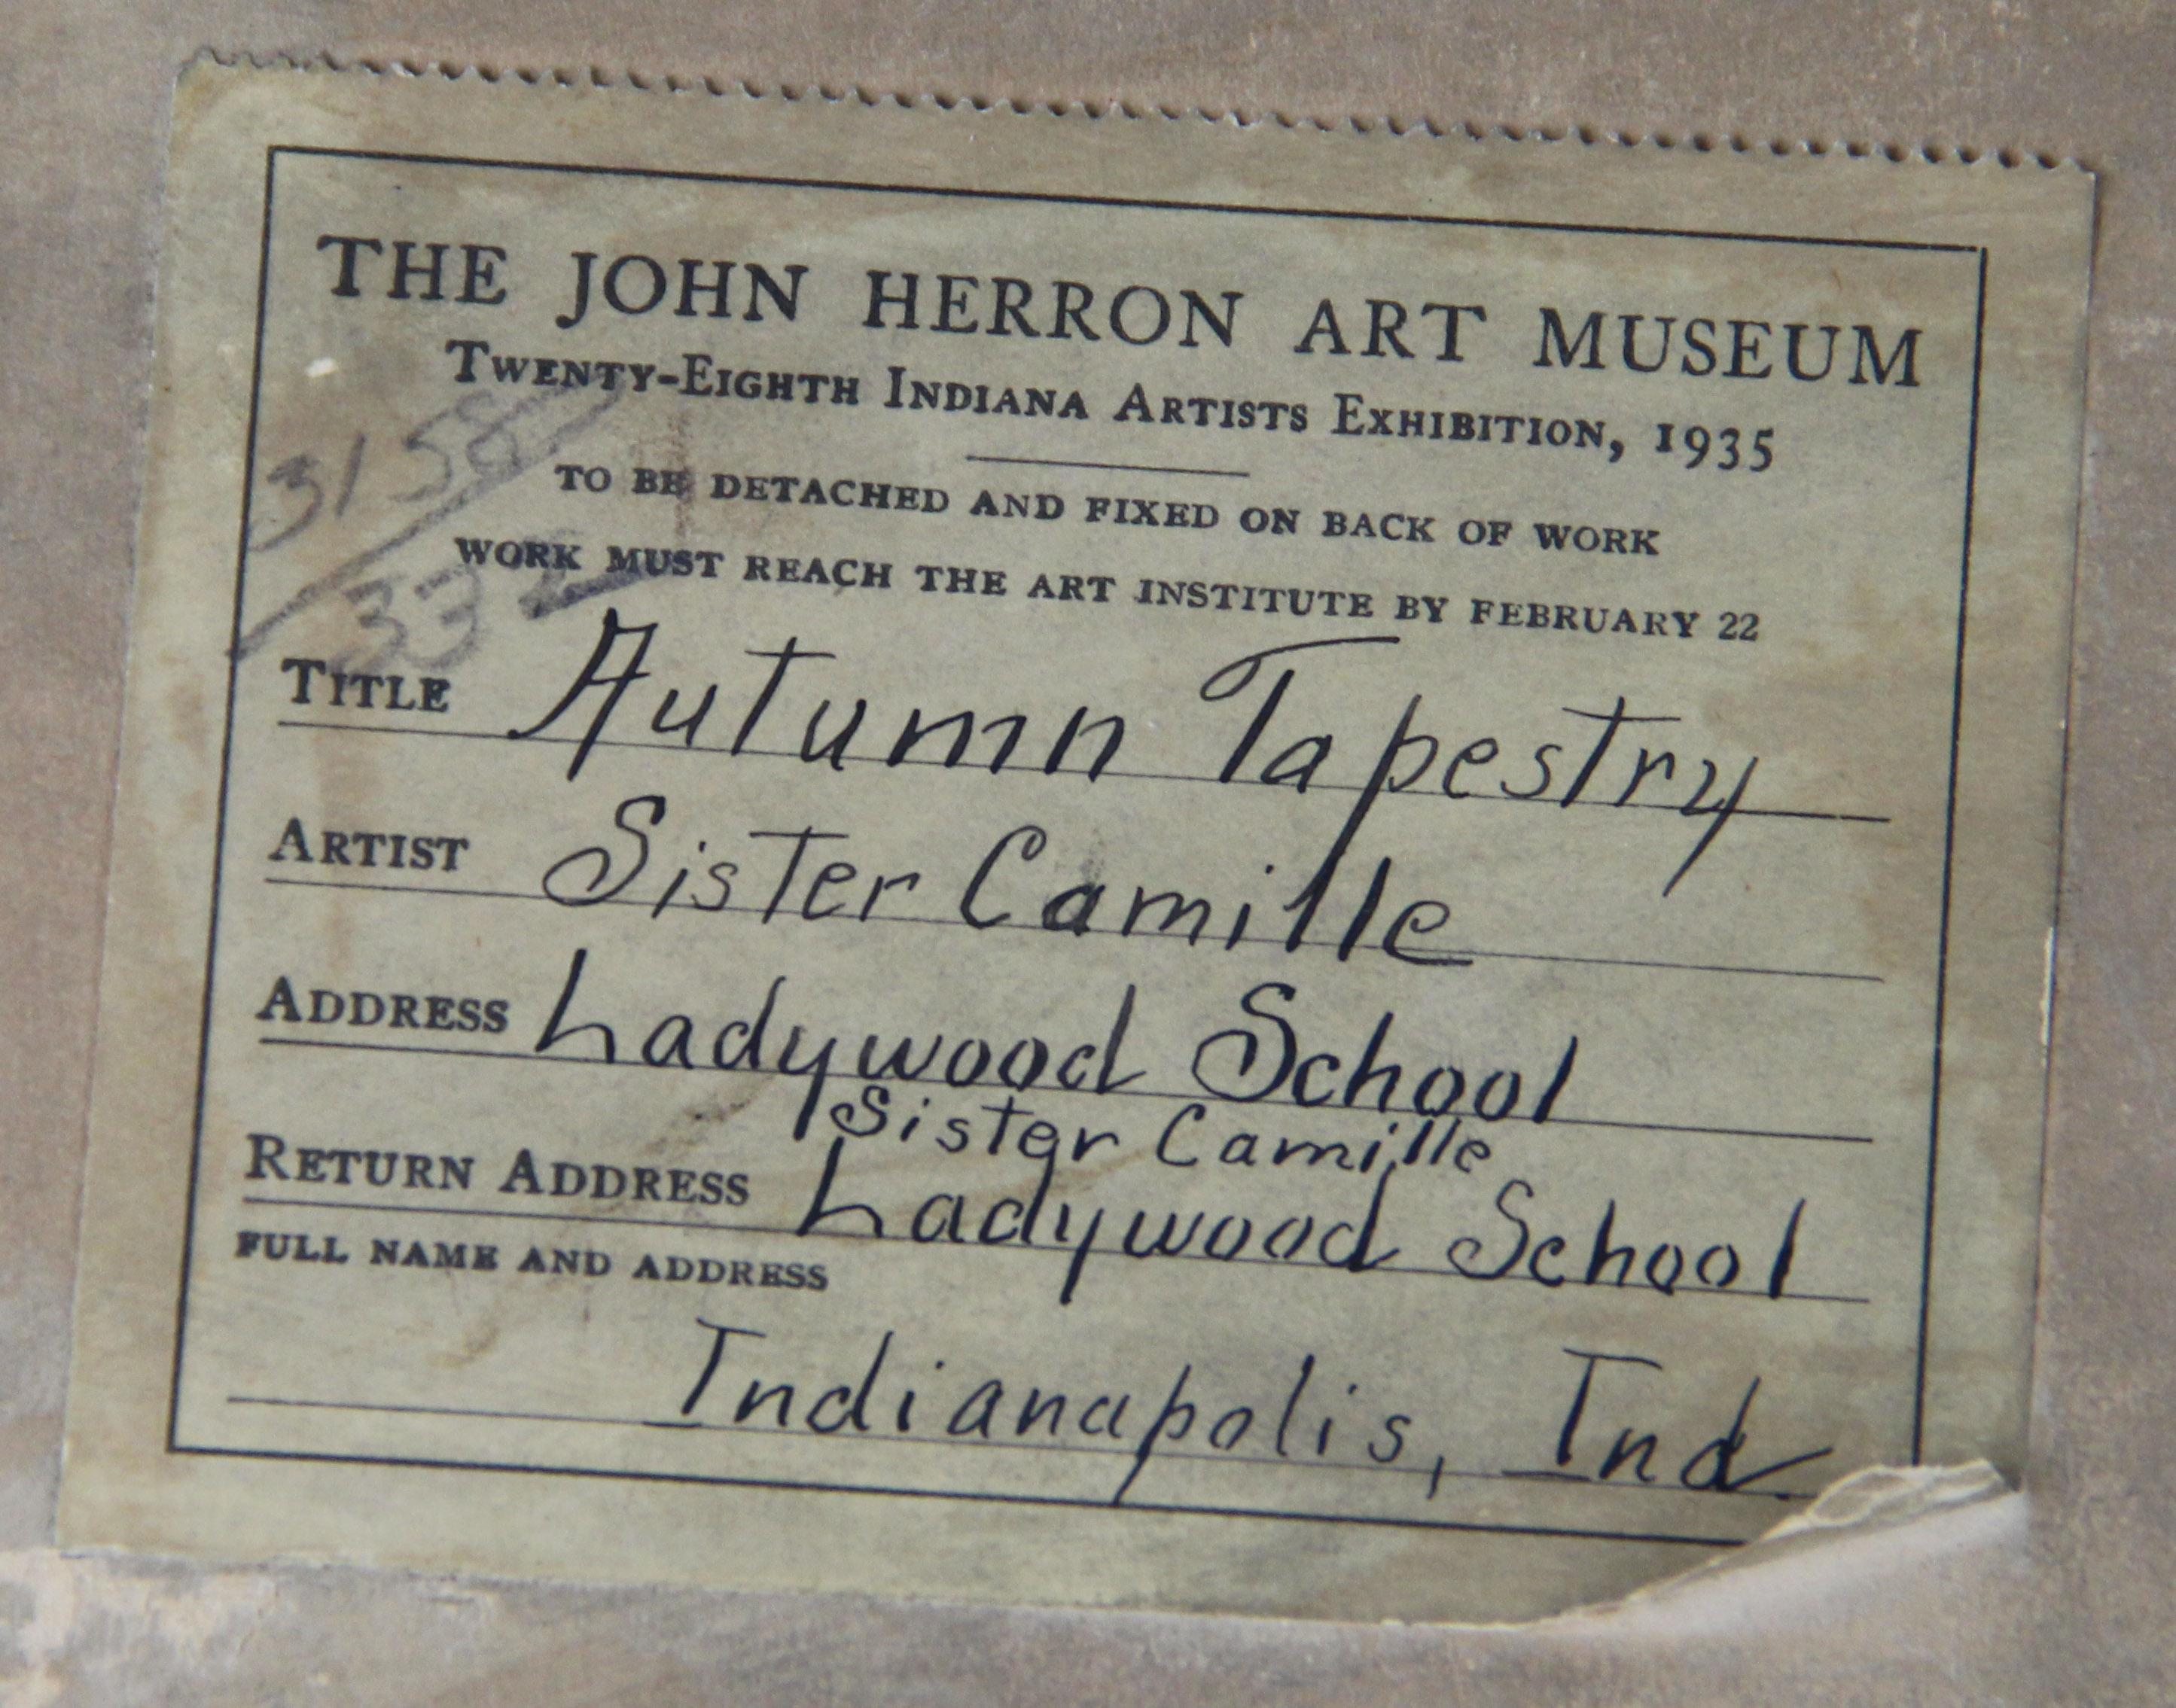 THE JOHN HERRON ART MUSEUM
TWENTY-EIGHTH INDIANA ARTISTS EXHIBITION, 1935
3158
TO BE DETACHED AND FIXED ON BACK OF WORK
WORK MUST REACH THE ART INSTITUTE BY FEBRUARY 22
TITLE Autumn Tapestry
ARTIST Sister Camille
ADDRESS Ladywood School
Sister Camille
RETURN ADDRESS Ladywood School
FULL NAME AND ADDRESS
Indianapolis, Ind.